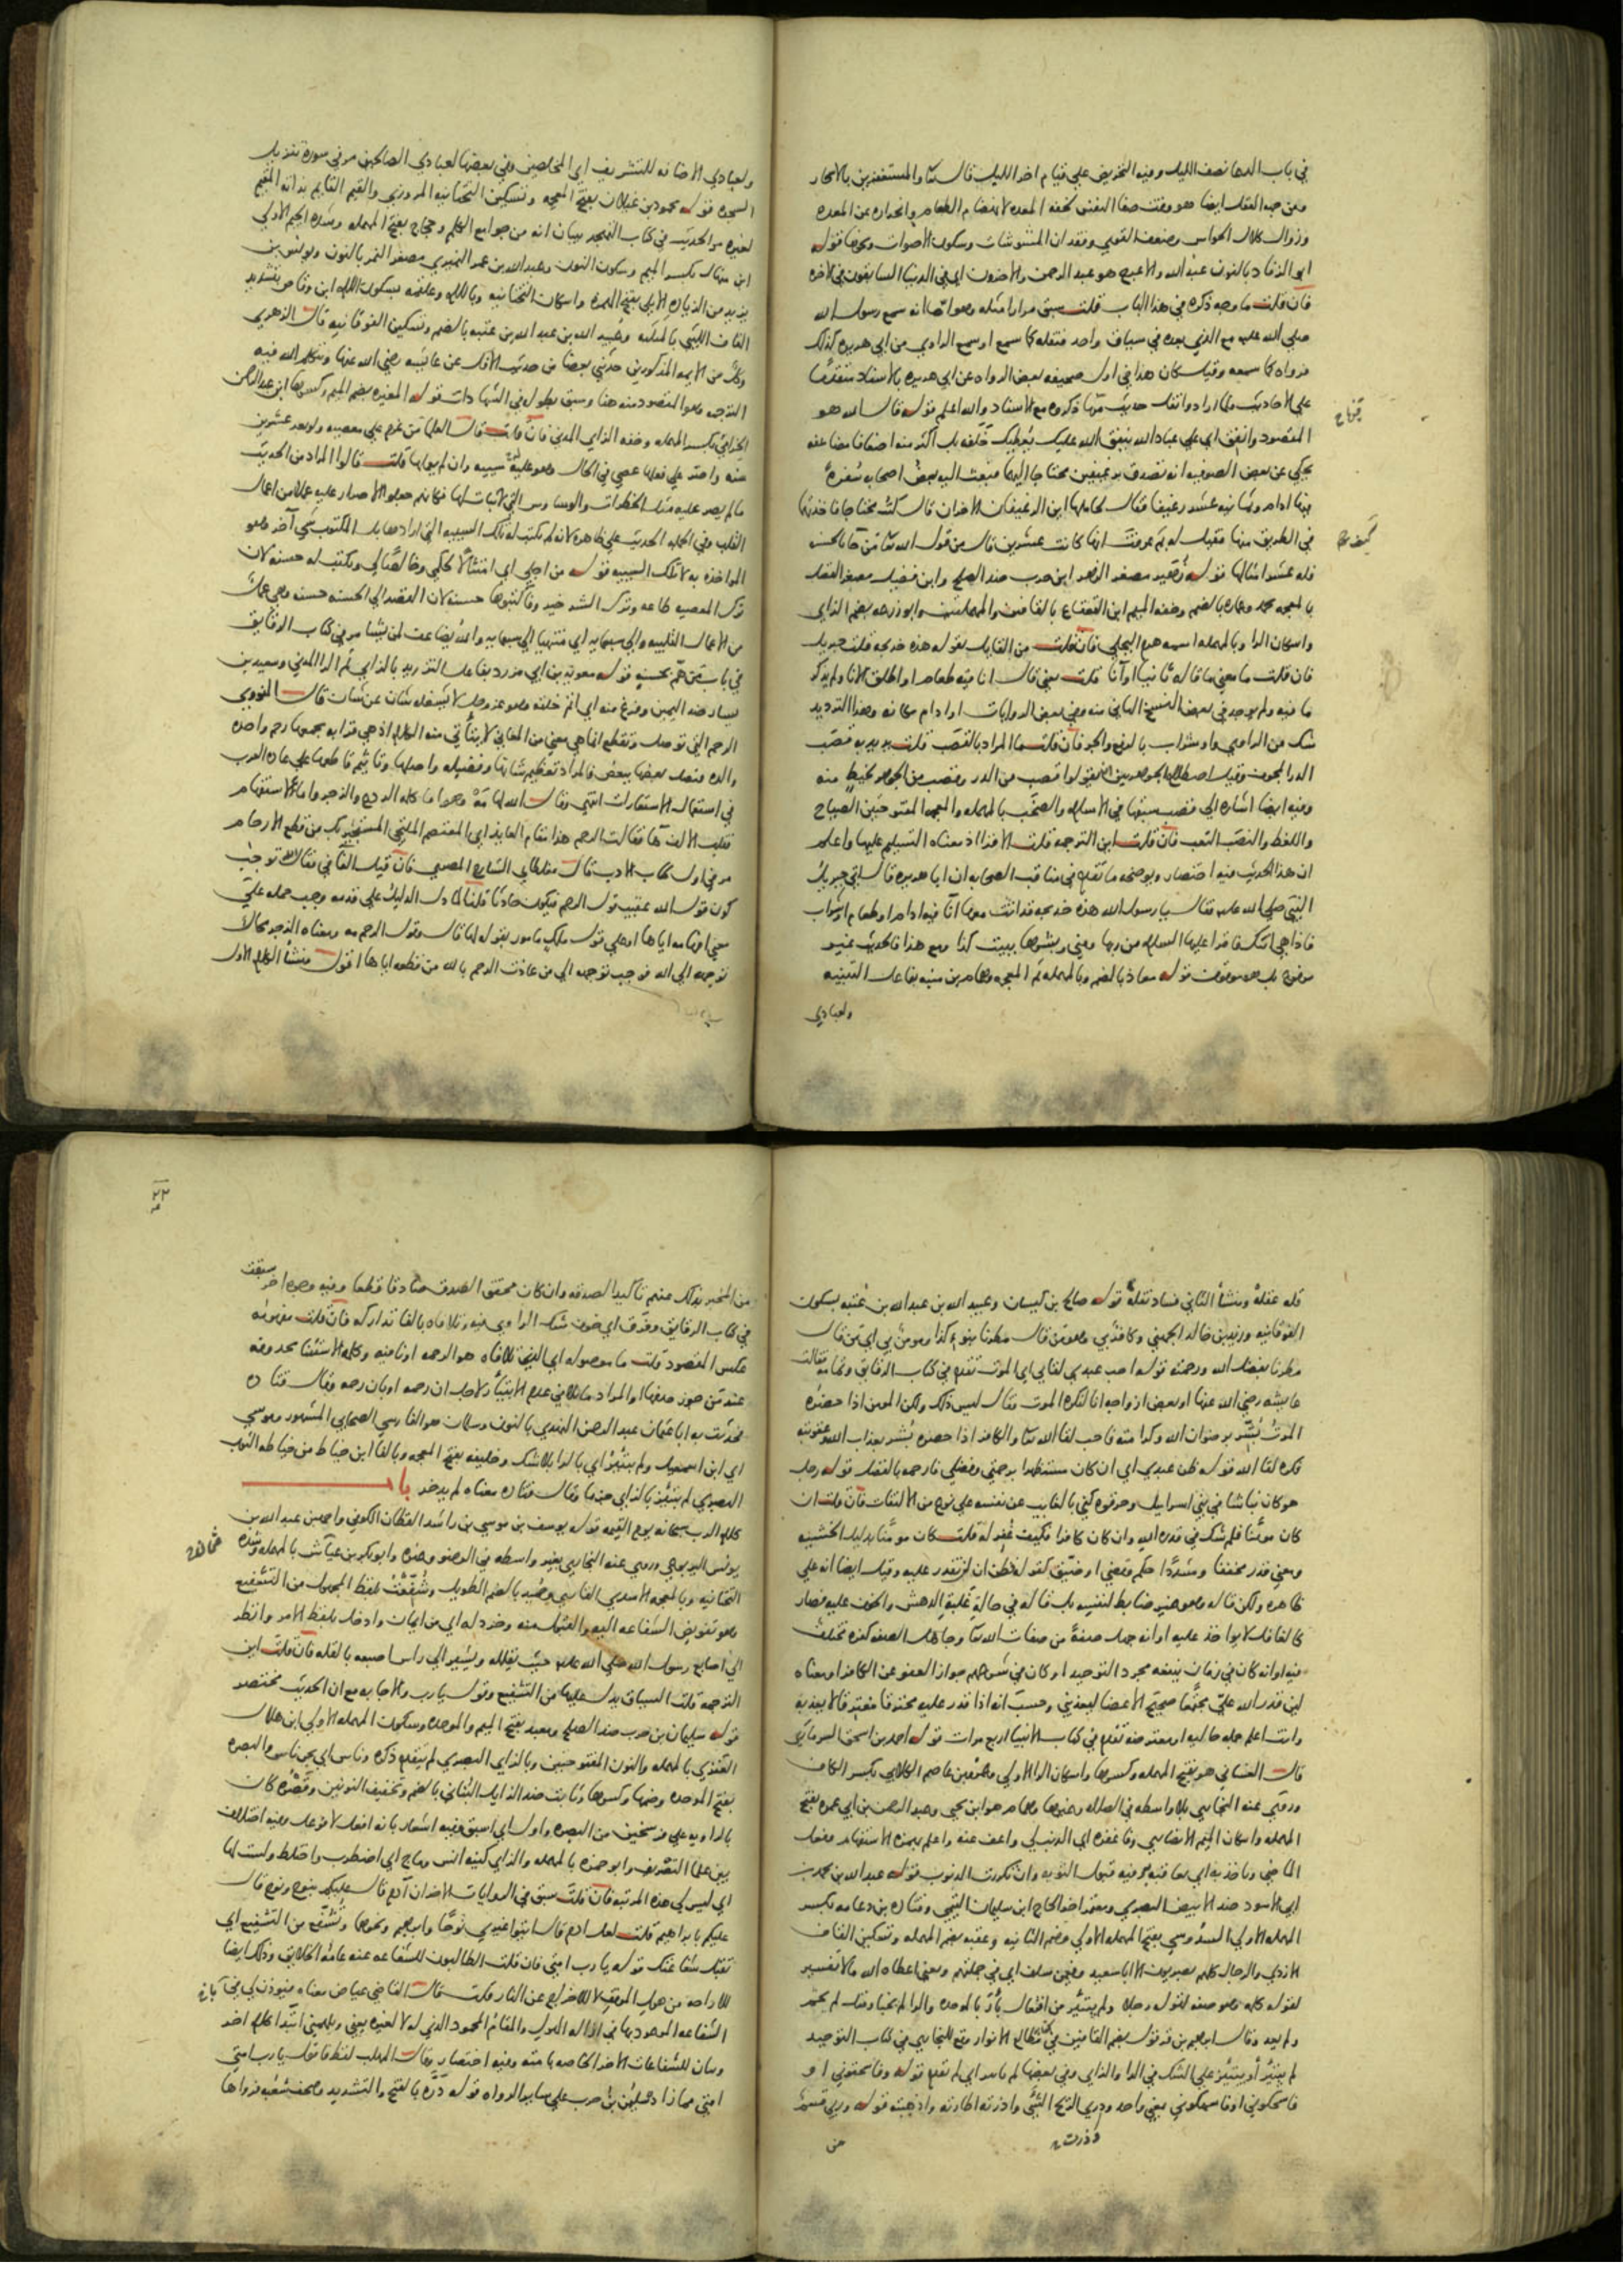 في باب الدعا نصف الليل وفيه التحريض على قيام اخر الليل قال تعا والمستغفرين بالاسحار
ومن جهة العقل ايضا هو وقت صفا النفس لخفة المعدة لانهضام الطعام وانحداره عن المعدة
وزوال كلال الحواس وضعف القوى وفقدان المشوشات وسكون الاصوات ونحوها قوله
ابو الزناد بالنون عبد الله والاعرج هو عبد الرحمن والاخرون اي في الدنيا السابقون في الاخرة
فان قلت ما وجه ذكره في هذا الباب قلت سبق مرارا مثله وهو انه سمع رسول الله
صلى الله عليه مع الذي بعده في سياق واحد فنقله كما سمع او سمع الراوي من ابي هريرة كذلك
فرواه كما سمعه وقيل كان هذا في اول صحيفة بعض الرواة عن ابي هريرة بالاسناد متقدما
على الاحاديث فلما ارادوا نقل حديث منها ذكروه مع الاسناد والله اعلم قوله قال الله هو
المقصود وانفق اي على عباد الله ينفق الله عليك يعطيك خلفه بل اكثر منه اضعافا مضاعفة
يحكى عن بعض الصوفية انه تصدق برغيفين محتاجا اليهما فبعث اليه بعض اصحابه سفرة
فيها ادام وثمانية عشر رغيفا فقال لحاملها اين الرغيفان الاخران قال كنت محتاجا فاخذتهما
في الطريق منها فقيل له بم عرفت انها كانت عشرين قال من قول الله تعا من جا بالحسنة
فله عشر امثالها قوله زهير مصغر الزهر ابن حرب ضد الصلح وابن فضيل مصغر الفضل
بالمعجمة محمد وعمارة بالضم وخفة الميم ابن القعقاع بالقافين والمهملتين وابو زرعة بضم الزاي
واسكان الرا وبالمهملة اسمه هرم البجلي فان قلت من القايل بقوله هذه خديجة قلت جبريل
فان قلت ما معنى ما قاله ثانيا او انا قلت يعني قال انا فيه طعام او اطلق الانا ولم يذكر
ما فيه ولم يوجد في بعض النسخ الثاني منه وفي بعض الروايات او ادام مكانه وهذا الترديد
شك من الراوي واو شراب بالرفع والجر فان قلت ما المراد بالقصب قلت يريد به قصب
الدر المجوف وقيل اصطلاح الجوهريين ان يقولوا قصب من الدر وقصب من الجوهر لخيط منه
وفيه ايضا اشارة الى قصب سبقها في الاسلام والصخب بالمهملة والمعجمة المفتوحتين الصياح
واللغط والنصب التعب فان قلت اين الترجمة قلت الاقرا اذ معناه التسليم عليها واعلم
ان هذا الحديث فيه اختصار ويوضحه ما تقدم في مناقب الصحابة ان ابا هريرة قال اتى جبريل
النبي صلى الله عليه فقال يا رسول الله هذه خديجة قد اتت معها انا فيه ادام او طعام او شراب
فاذا هي اتتك فاقرا عليها السلام من ربها ومني وبشرها ببيت كذا ومع هذا فالحديث غير
مرفوع بل هو موقوف قوله معاذ بالضم وبالمهملة ثم المعجمة وهمام بن منبه بفاعل التنبيه
ولعبادي
ولعبادي الاضافة للتشريف اي المخلصين وفي بعضها لعبادي الصالحين مر في سورة تنزيل
السجدة قوله محمود بن غيلان بفتح المعجمة وتسكين التحتانية المروزي والقيم القايم بذاته المقيم
لغيره مر الحديث في كتاب التهجد ببيان انه من جوامع الكلم وحجاج بفتح المهملة وشدة الجيم الاولى
ابن منهال بكسر الميم وسكون النون وعبد الله بن عمر النميري مصغر النمر بالنون ويونس بن
يزيد من الزيادة الايلي بفتح الهمزة واسكان التحتانية وباللام وعلقمة بسكون اللام ابن وقاص بتشديد
القاف الليثي بالمثلثة وعبيد الله بن عبد الله بن عتبة بالضم وتسكين الفوقانية قال الزهري
وكل من الايمة المذكورين حدثني بعضا من حديث الافك عن عايشة رضي الله عنها ويتكلم الله فيه
الترجمة وهو المقصود منه هنا وسبق بطوله في الشهادات قوله المغيرة بضم الميم وكسرها ابن عبد الرحمن
الحزامي بكسر المهملة وخفة الزاي المدني فان قلت قال العلما من عزم على معصية ولو بعد عشرين
سنة واصر على فعلها عصى في الحال وهو عليه سيية وان لم يعملها قلت قالوا المراد من الحديث
ما لم يصر عليه مثل الخطرات والوساوس التي لا ثبات لها فكانهم جعلوا الاصرار عليه عملا من اعمال
القلب وفي الجملة الحديث على ظاهره لانه لم يكتب له تلك السيية التي ارادها بل المكتوب شي آخر وهو
المواخذة به لا تلك السيية قوله من اجلي اي امتثالا لحكمي وخالصا لي ويكتب له حسنة لان
ترك المعصية طاعة وترك الشر خير وفاكتبوها حسنة لان القصد الى الحسنة حسنة وهي عمل
من الاعمال القلبية والى سبعماية اي منتهيا الى سبعماية والله يضاعف لمن يشا مر في كتاب الرقايق
في باب من هم بحسنة قوله معوية بن ابي مزرد بفاعل التزريد بالزاي ثم الرا المدني وسعيد بن
يسار ضد اليمين وفرغ منه اي اتم خلقه وهو عز وجل لا يشغله شان عن شان قال النووي
الرحم التي توصل وتقطع انما هي معنى من المعاني لا يتاتى منه الكلام اذ هي قرابة يجمعها رحم واحدة
والدة فيتصل بعضها ببعض فالمراد تعظيم شانها وفضيلة واصلها وتاثيم قاطعها على عادة العرب
في استعمال الاستعارات انتهى وقال الله لها مه وهو اما كلمة الردع والزجر واما للاستفهام
فقلبت الالف ها فقالت الرحم هذا مقام العايذ اي المعتصم الملتجي المستجير بك من قطع الارحام
مر في اول كتاب الادب قال مغلطاي الشارح المصري فان قيل الفا في فقال توجب
كون قول الله عقيب قول الرحم فيكون حادثا قلنا لما دل الدليل على قدمه وجب حمله على
معنى افهامه اياها او على قول ملك مامور بقوله لها قال وقول الرحم مه ومعناه الزجر محالا
توجهه الى الله فوجب توجهه الى من عاذت الرحم بالله من قطعه اياها اقول منشا الكلام الاول
قلة عقله ومنشا الثاني فساد نقله قوله صالح بن كيسان وعبيد الله بن عبد الله بن عتبة بسكون
الفوقانية وزيد بن خالد الجهني وكافر بي وهو من قال مطرنا بنوء كذا ومومن بي اي من قال
مطرنا بفضل الله ورحمته قوله احب عبدي لقاي اي الموت تقدم في كتاب الرقاق وتمامه فقالت
عايشة رضي الله عنها او بعض ازواجه انا لنكره الموت وقال ليس ذلك ولكن المومن اذا حضره
الموت بشر برضوان الله وكرامته فاحب لقا الله تعا والكافر اذا حضره بشر بعذاب الله وعقوبته
فكره لقا الله قوله ظن عبدي اي ان كان مستظهرا برحمتي وفضلي فارحمه بالفضل قوله رجل
هو كان نباشا في بني اسرايل وحرقوه كنى بالغايب عن نفسه على نوع من الالتفات فان قلت ان
كان مومنا فلم شك في قدرة الله وان كان كافرا فكيف غفر له قلت كان مومنا بدليل الخشية
ومعنى قدر مخففا ومشددا حكم وقضى او ضيق كقوله فظن ان لن نقدر عليه وقيل ايضا انه على
ظاهره ولكن قاله وهو غير ضابط لنفسه بل قاله في حالة غلبة الدهش والخوف عليه فصار
كالغافل لا يواخذ عليه او انه جهل صفة من صفات الله تعا وجاهل الصفة كفره مختلف
فيه او انه كان في زمان ينفعه مجرد التوحيد او كان في شرعهم جواز العفو عن الكافر او معناه
لين قدر الله علي مجتمعا صحيح الاعضا ليعذبني وحسب انه اذا قدر عليه محترقا مفترقا لا يعذبه
وانت اعلم جملة حالية او معترضة تقدم في كتاب الانبيا اربع مرات قوله احمد بن اسحق السرماري
قال الغساني هو بفتح المهملة وكسرها واسكان الرا الاولى وعمرو بن عاصم الكلابي بكسر الكاف
وروى عنه البخاري بلا واسطة في الصلاة وغيرها وهمام هو ابن يحيى وعبد الرحمن بن ابي عمرة بفتح
المهملة واسكان الميم الانصاري وفاغفره اي الذنب لي واعف عنه واعلم بهمزة الاستفهام وفعل
الماضي وياخذ به اي يعاقبه وفيه قبول التوبة وان تكررت الذنوب قوله عبد الله بن محمد بن
ابي الاسود ضد الابيض البصري ومعتمر اخو الحاج ابن سليمان التيمي وقتادة بن دعامة بكسر
المهملة الاولى السدوسي بفتح المهملة الاولى وضم الثانية وعقبة بضم المهملة وتسكين القاف
الازدي والرجال كلهم بصريون الا ابا سعيد وفيمن سلف اي في جملتهم ومعنى اعطاه الله مالا تفسير
لقوله كلمة وهو صفة لقوله رجلا ولم يبتئر من افتعال بأر بالموحدة والرا لم يخبا وقيل لم يحتمر
ولم يعد وقال ابراهيم بن قرقول بضم القافين في كتابه مطالع الانوار وقع للبخاري في كتاب التوحيد
لم يبتئر او يبتئز على الشك في الرا والزاي وفي بعضها لم ياتبر اي لم يقدم قوله وفاسحقوني او
فاسحكوني او فاسهكوني بمعنى واحد وذري الريح الشي واذرته اطارته واذهبته قوله وربي قسم
وذرت
من
٢٢
من المخبر بذلك عنهم تاكيدا لصدقه وان كان محقق الصدق صادقا قطعا وفيه وجوه اخر سبقت
في كتاب الرقايق وفرق اي خوف شك الراوي فيه وتلافاه بالفا تداركه فان قلت مفهومه
عكس المقصود قلت ما موصولة اي الذي تلافاه هو الرحمة او نافية وكلمة الاستثنا محذوفة
عند من جوز حذفها او المراد ما تلافى عدم الابتئار لاجل ان رحمه او بان رحمه وقال قتادة
فحدثت به ابا عثمان عبد الرحمن النهدي بالنون وسلمان هو الفارسي الصحابي المشهور وموسى
اي ابن اسمعيل ولم يبتئر اي بالرا بلا شك وخليفة بفتح المعجمة وبالفا ابن خياط من خياطة الثوب
البصري لم يبتئز بالزاي جزما وقال قتادة معناه لم يدخر باب
كلام الرب سبحانه يوم القيمة قوله يوسف بن موسى بن راشد القطان الكوفي واحمد بن عبد الله بن
يونس اليربوعي وروى عنه البخاري بغير واسطة في الوضو وغيره وابو بكر بن عياش بالمهملة وشدة
التحتانية وبالمعجمة الاسدي القاري وحميد بالضم الطويل وشفعت بلفظ المجهول من التشفيع
وهو تفويض الشفاعة اليه والقبول منه وخردلة اي من ايمان وادخل بلفظ الامر وانظر
الى اصابع رسول الله صلى الله عليه حيث يقلله ويشير الى راس اصبعه بالقلة فان قلت اين
الترجمة قلت السياق يدل عليها من التشفيع وقوله يا رب والاجابة مع ان الحديث مختصر
قوله سليمان بن حرب ضد الصلح ومعبد بفتح الميم والموحدة وسكون المهملة الاولى ابن هلال
العنزي بالمهملة والنون المفتوحتين وبالزاي البصري لم يتقدم ذكره وناس اي نحن ناس والبصرة
بفتح الموحدة وضمها وكسرها وثابت ضد الزايل البناني بالضم وتخفيف النونين وقصره كان
بالزاوية على فرسخين من البصرة واول اي اسبق وفيه اشعار بانه افعل لا فوعل وفيه اختلاف
بين علما التصريف وابو حمزة بالمهملة والزاي كنية انس وماج اي اضطرب واختلط ولست لها
اي ليس لي هذه المرتبة فان قلت سبق في الروايات الاخر ان آدم قال عليكم بنوح ونوح قال
عليكم بابراهيم قلت لعل ادم قال ايتوا غيري نوحا وابراهيم ونحوها وتشفع من التشفيع اي
تقبل شفاعتك قوله يا رب امتي فان قلت الطالبون للشفاعة عنه عامة الخلايق وذلك ايضا
للاراحة من هول الموقف لا للاخراج عن النار قلت قال القاضي عياض معناه فيوذن لي في
الشفاعة الموعود بها في ازالة الهول والمقام المحمود الذي له لا لغيره يعني ويلهمني ابتدا كلام اخر
وبيان للشفاعات الاخر الخاصة بامته وفيه اختصار وقال المهلب لفظ فاقول يا رب امتي
امتي مما زاد سليمن بن حرب على ساير الرواة قوله ذرة بالفتح والتشديد وصحف شعبة فرواها